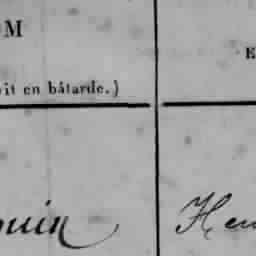 OM
E
it en bâtarde.)
uin Hen